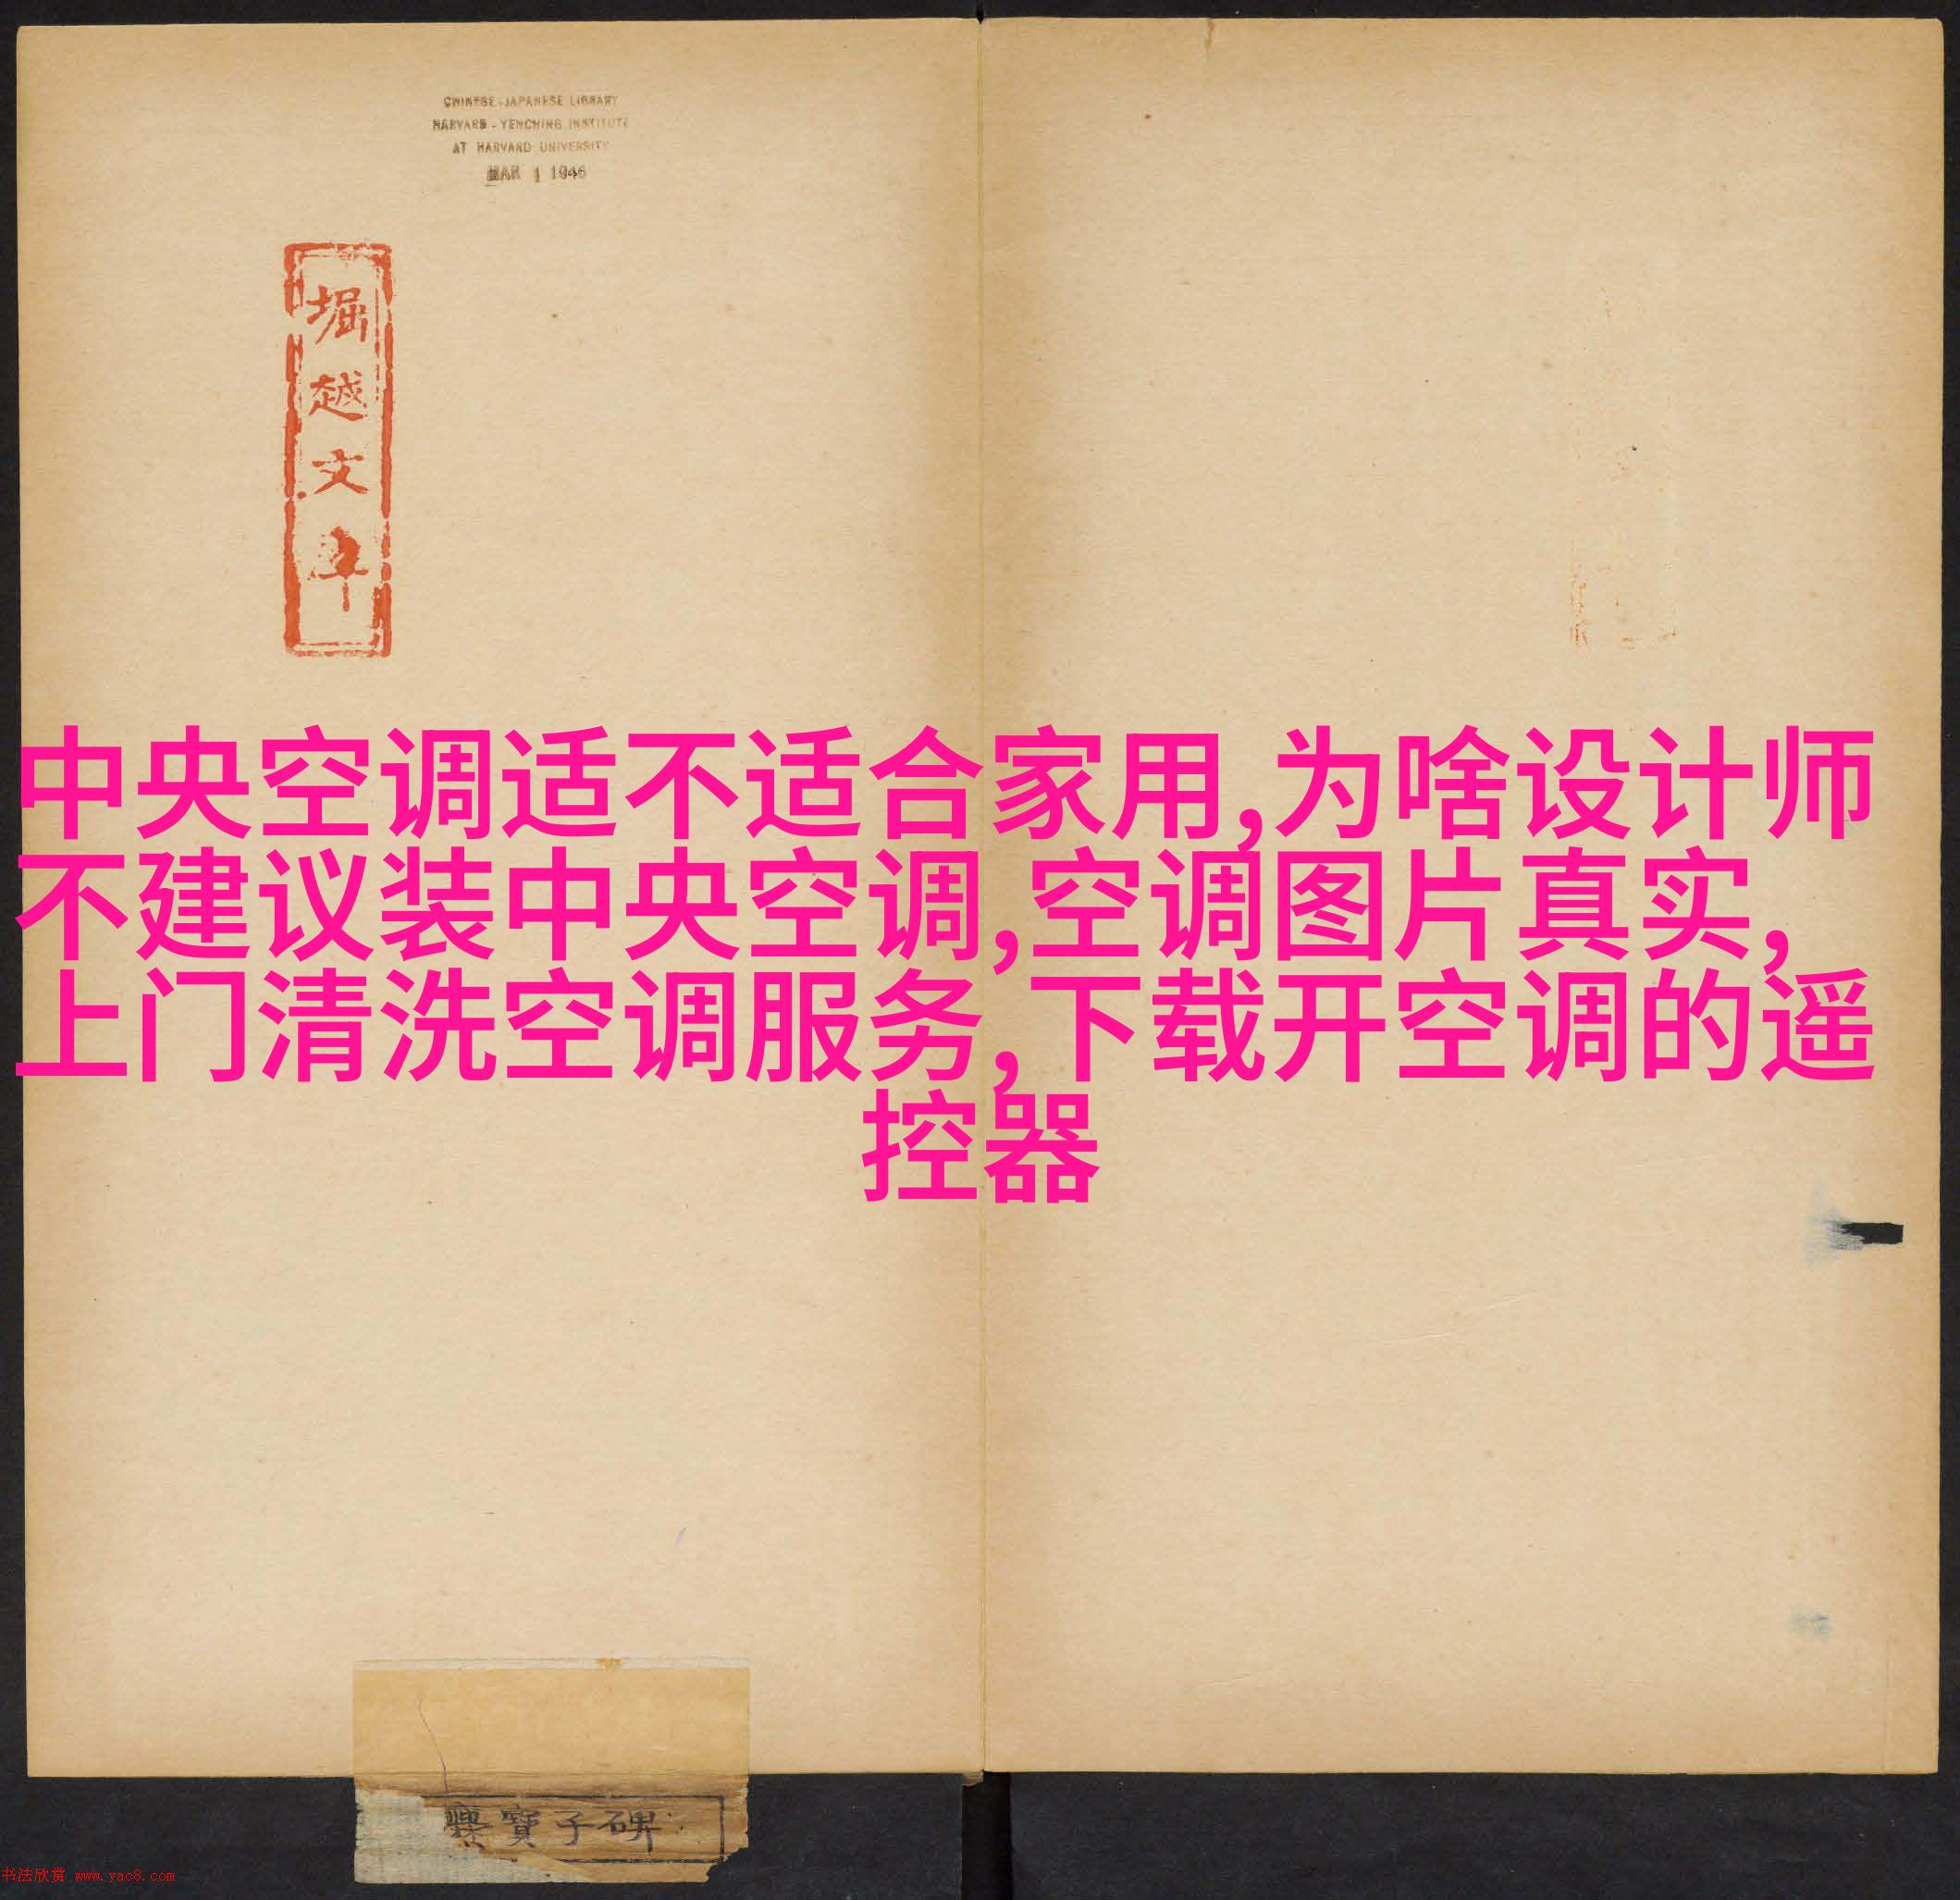 CHINESE-JAPANESE LIBRARY
HARVARD-YENCHING INSTITUTE
AT HARVARD UNIVERSITY
MAR 1 1946
堀越文庫
中央空调适不适合家用,为啥设计师
不建议装中央空调,空调图片真实,
上门清洗空调服务,下载开空调的遥
控器
爨寶子碑
书法欣赏 www.yac8.com